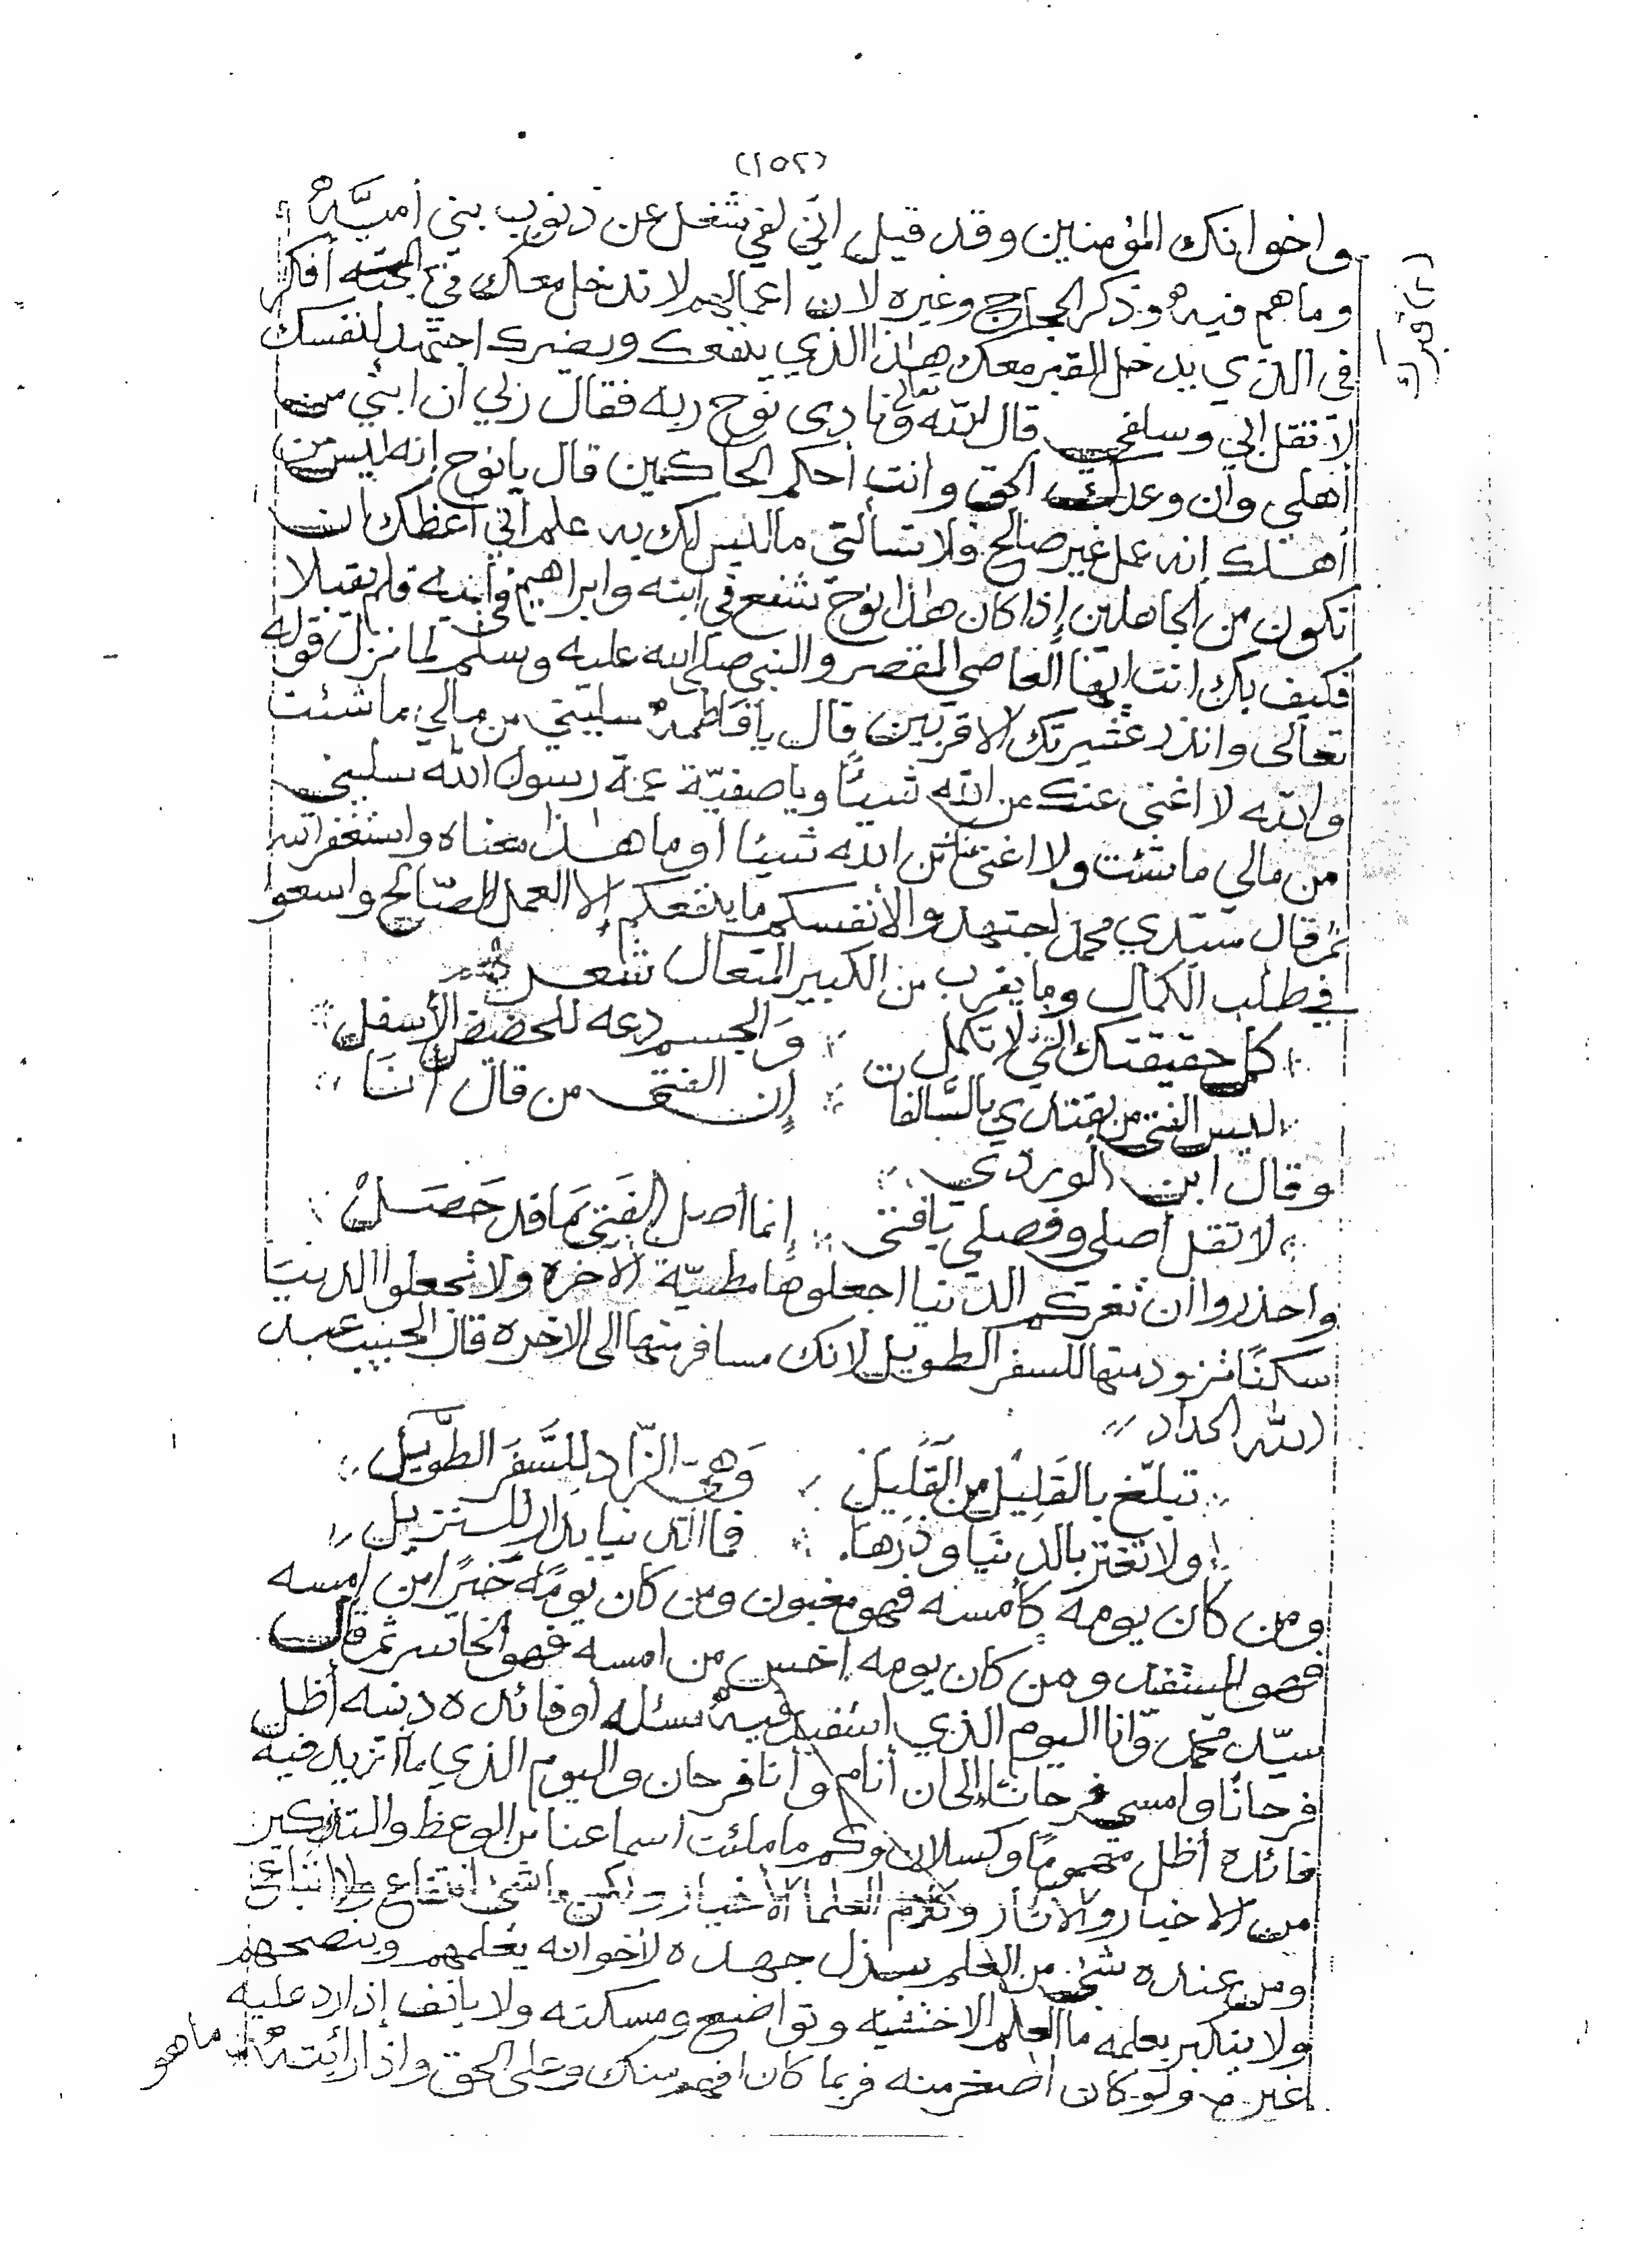 (١٥٢)
واخوانك المؤمنين وقد قيل اني لفي شغل عن ذنوب بني أميّة
وما هم فيه وذكر الحجاج وغيره لان اعمالهم لا تدخل معاك في الجنه أفكر
في الذي يدخل القبر معك هذا الذي ينفعك ويضرك اجتهد لنفسك
لا تقل ابي وسلفي قال الله تعالى ونادى نوح ربه فقال ربي ان ابني من
أهلي وان وعدك الحق وانت أحكم الحاكمين قال يا نوح إنه ليس من
أهلك إنه عمل غير صالح فلا تسألني ما ليس لك به علم اني أعظك ان
تكون من الجاهلين إذا كان هذا نوح تشفع في ابنه وابراهيم في أبيه فلم يقبلا
فكيف بك انت ايها العاصي المقصر والنبي صلى الله عليه وسلم لما نزل قوله
تعالى وانذر عشيرتك الاقربين قال يا فاطمة سليني من مالي ما شئت
والله لا اغني عنك من الله شيئًا ويا صفيّة عمة رسول الله سليني
من مالي ما شئت ولا اغني عنك من الله شيئا أو ما هذا معناه واستغفر الله
ثم قال سيدي محمد اجتهدوا لأنفسكم ما ينفعكم إلا العمل الصّالح واسعوا
في طلب الكمال وما يقرب من الكبير المتعال شعر
كمل حقيقتك التي لا تكمل والجسم دعه للحضض الأسفل
ليس الفتى من يقتدي بالسّالفات إن الفتى من قال أنا
وقال ابن الوردي
لا تقل أصلي وفصلي يا فتى إنما أصل الفتى ما قد حَصَلْ
واحذروا ان تغركم الدنيا اجعلوها مطيّة الاخرة ولا تجعلوا الدنيا
سكنًا تزود منها للسفر الطويل لانك مسافر منها الى الاخره قال الحبيب عبد
الله الحداد
تبلّغ بالقليل من القليل وهي الزّاد للسَّفر الطّويل
ولا تغتر بالدنيا وذرها فما الدنيا بدار للنزيل
ومن كان يومه كأمسه فهو مغبون ومن كان يومه خيرًا من امسه
فهو المستفد ومن كان يومه اخس من امسه فهو الخاسر ثم قال
سيّد محمّد وانا اليوم الذي استفيد فيه مسئله أو فائده دينه أظل
فرحانًا وامسي فرحانًا إلى ان أنام وأنا فرحان واليوم الذي ما تزيد فيه
فائده أظل وكسلان وكم ما ملئت اسماعنا من الوعظ والتذكير
من الاخبار والاثار وكلام العلما الأخيار ولكن ما شئ انتفاع ولا اتباع
ومن عنده شئ من العلم يبذل جهده لاخوانه يعلمهم وينصحهم
ولا يتكبر بعلمه ما العلم الا خشيه وتواضع ومسكنه ولا يأنف إذا رد عليه
غيره ولو كان اصغر منه فربما كان افهم منك وعلى الحق واذا رأيته ما هو